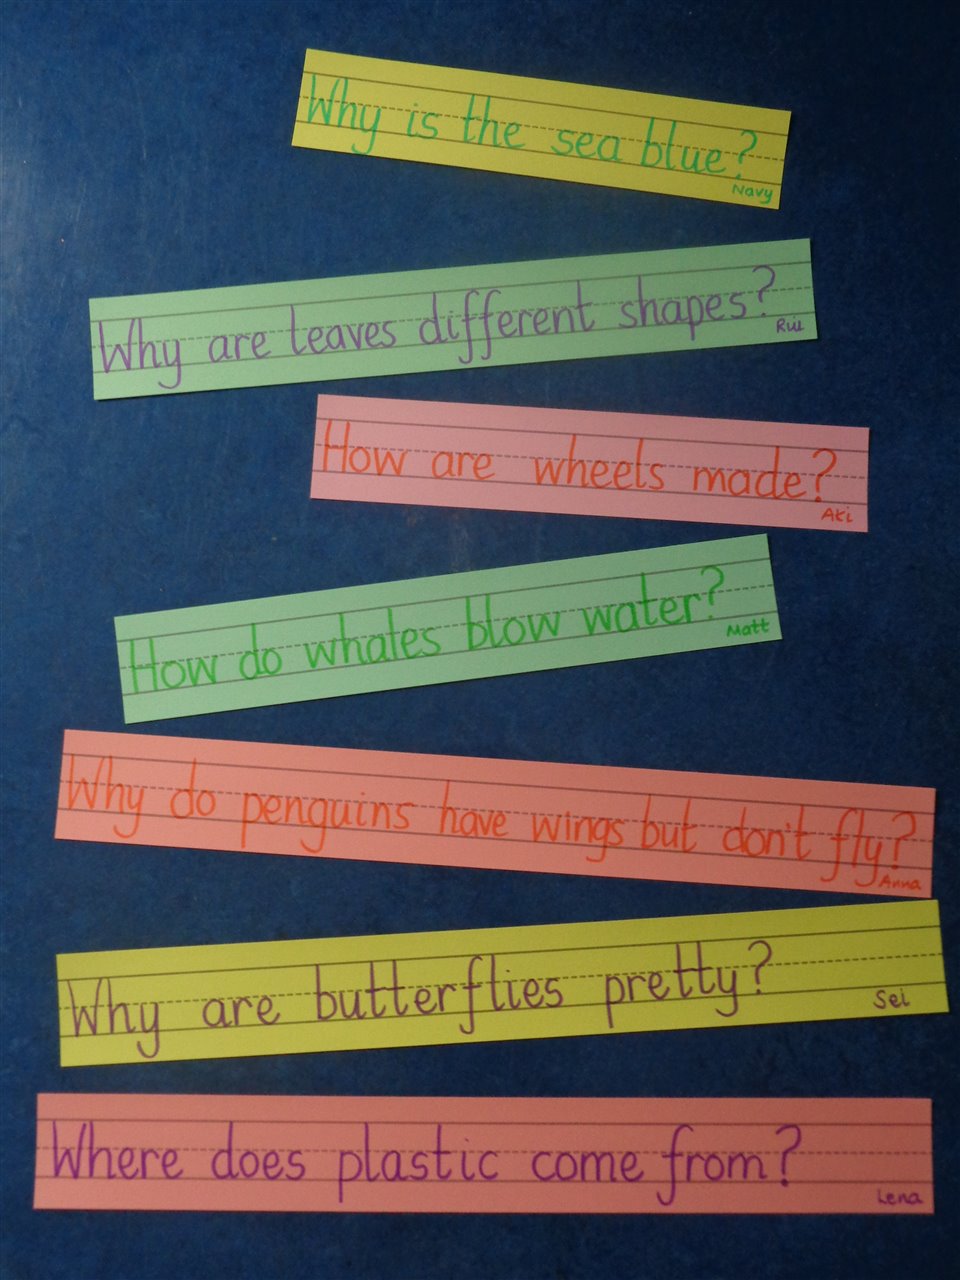 Why is the sea blue?
Navy
Why are leaves different shapes?
Rui
How are wheels made?
Aki
How do whales blow water?
Matt
Why do penguins have wings but don't fly?
Anna
Why are butterflies pretty?
Sei
Where does plastic come from?
Lena